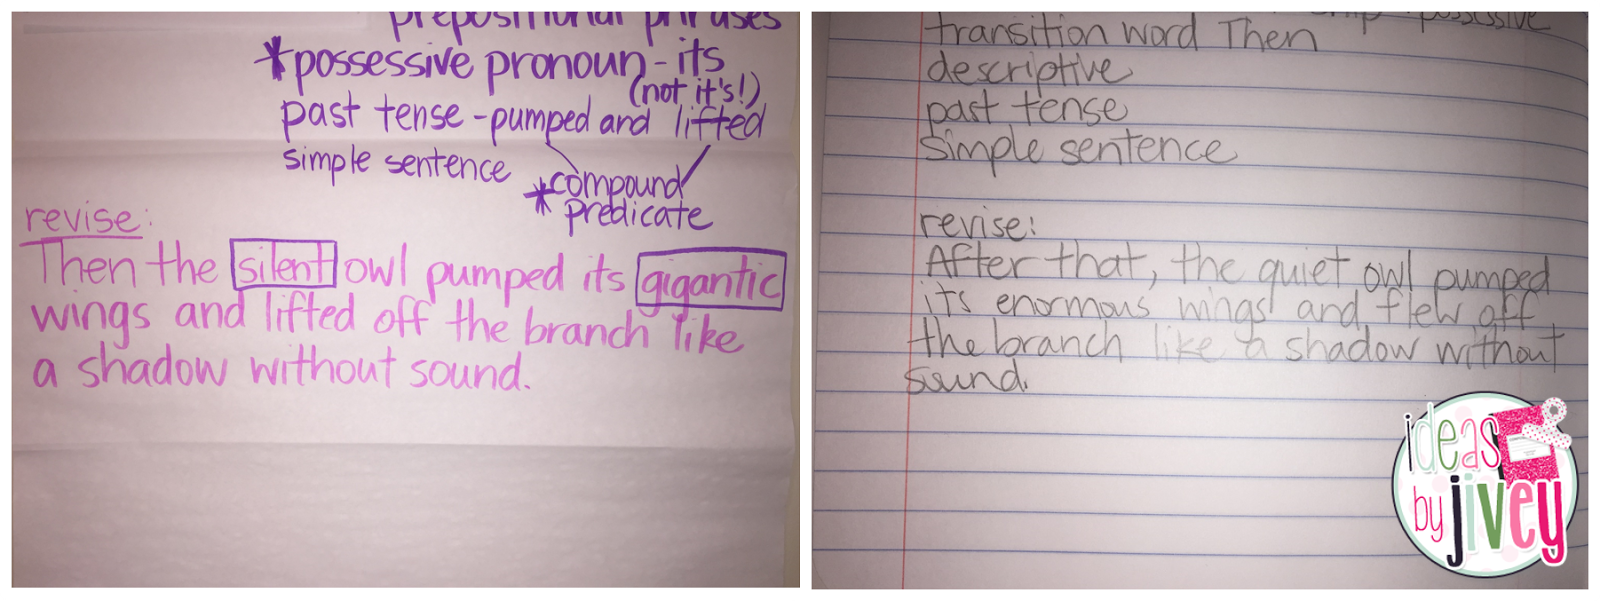 prepositional phrases
*possessive pronoun - its
(not it's!)
past tense - pumped and lifted
simple sentence
*compound
predicate
revise:
Then the silent owl pumped its gigantic
wings and lifted off the branch like
a shadow without sound.
possessive
transition word Then
descriptive
past tense
simple sentence
revise:
After that, the quiet owl pumped
its enormous wings and flew off
the branch like a shadow without
sound.
ideas
by jivey